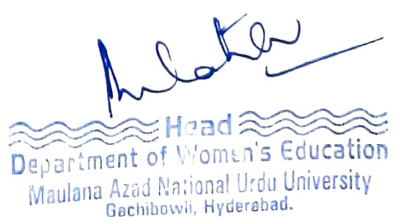 Head
Department of Women's Education
Maulana Azad National Urdu University
Gachibowli, Hyderabad.